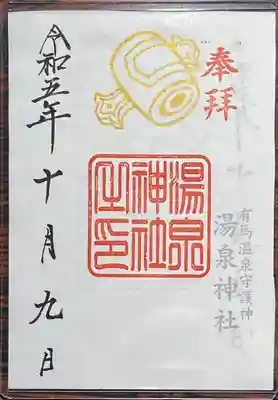 奉拝
有馬温泉守護神
湯泉神社
湯泉
神社
之印
令和五年
十月九日